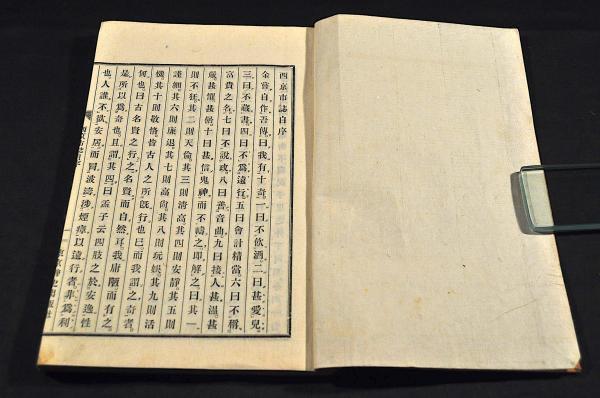 四京市誌自序
金嘗自作吾傳曰我有十奇一曰不飮酒二曰甚愛兒
三曰不藏書四曰不爲遠行五曰會計精當六曰不稱
富貴之名七曰不說政八曰善音曲九曰接人甚溫甚
嚴甚謹甚傲十曰甚信鬼神而不禱之即解之曰其一
則不狂其二則天倫其三則淸高其四則安靜其五則
謹細其六則廉退其七則高尙其八則玩娛其九則活
機其十則敬悟皆古人之所旣行也已而我謂之奇者
何也曰古名賢之行之名賢而自然耳我庸陋而有之
是所以爲奇也且謂其四曰孟子云四肢之於安逸性
也人誰不欲安居而同波濤涉煙瘴以遠行者非爲利